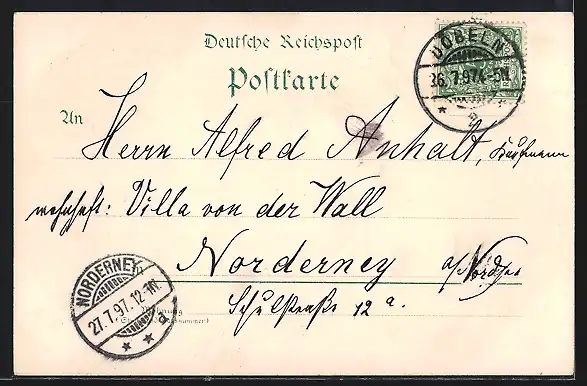 Deutsche Reichspost
Postkarte
DÖBELN
7.97.4-5N.
An
Herrn Alfred Anhalt, Kaufmann
wohnhaft: Villa von der Wall
Norderney a/Nordsee
Schulstraße 12a.
NORDERNEY
27.7.97.12-1N.